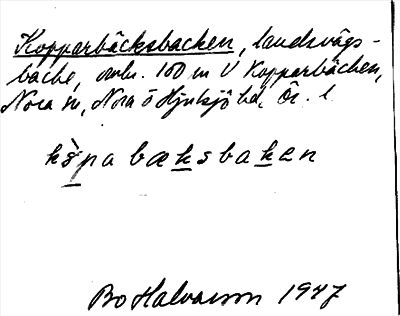 Kopparbäcksbacken, landsvägs-
backe, omkr. 100 m V Kopparbäcken,
Nora sn, Nora o Hjulsjö hd, Ör. l.
kò̱pa bæḵsbaḵen
Bo Halvarson 1947